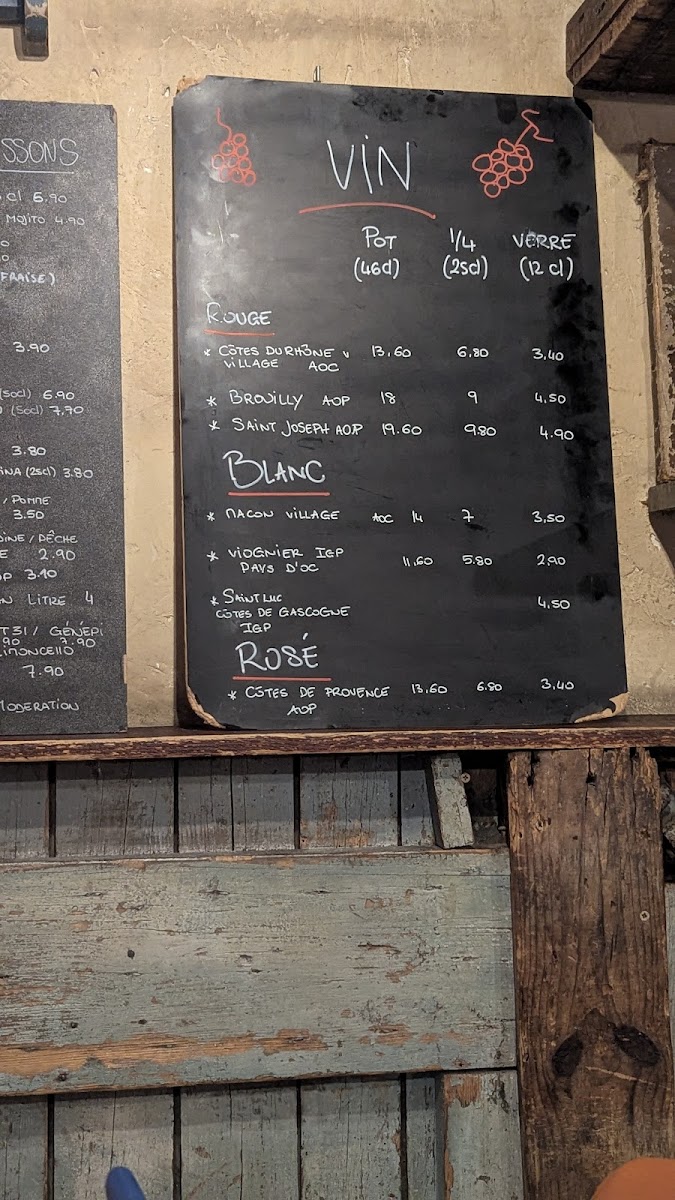 SSONS
cl 6.90
MOJITO 4.90
FRAISE)
3.90
(50cl) 6.90
(50cl) 7,70
3.80
INA (25cl) 3.80
/ POMME
3.50
/ PÊCHE
2.90
3.10
LITRE 4
T31 / GÉNÉPI
90 7.90
LIMONCELLO
7.90
MODERATION
VIN
POT 1/4 VERRE
(46cl) (25cl) (12 cl)
ROUGE
* CÔTES DU RHÔNE V 13.60 6.80 3,40
VILLAGE AOC
* BROUILLY AOP 18 9 4,50
* SAINT JOSEPH AOP 19.60 9.80 4.90
BLANC
* MACON VILLAGE AOC 14 7 3,50
* VIOGNIER IGP 11.60 5.80 2,90
PAYS D'OC
* SAINT LUC 4.50
CÔTES DE GASCOGNE
IGP
ROSÉ
* CÔTES DE PROVENCE 13.60 6.80 3,40
AOP